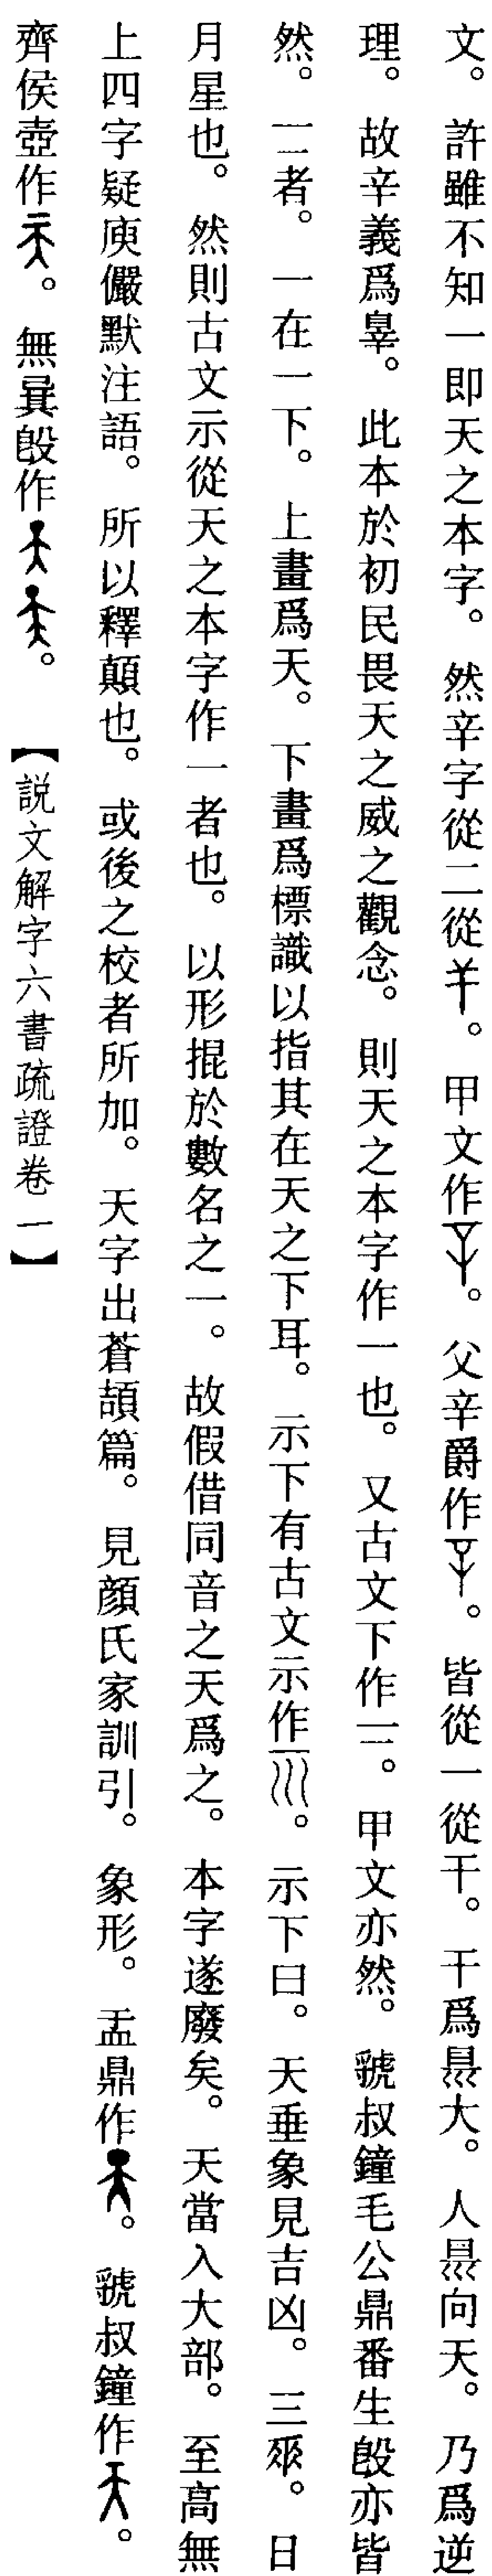 文。許雖不知一即天之本字。然辛字從二從𢆉。甲文作。父辛爵作。皆從一從干。干爲㬎大。人㬎向天。乃爲逆
理。故辛義爲辠。此本於初民畏天之威之觀念。則天之本字作一也。又古文下作二。甲文亦然。虢叔鐘毛公鼎番生𣪘亦皆
然。二者。一在一下。上畫爲天。下畫爲標識以指其在天之下耳。示下有古文示作。示下曰。天垂象見吉凶。三𠂹。日
月星也。然則古文示從天之本字作一者也。以形掍於數名之一。故假借同音之天爲之。本字遂廢矣。天當入大部。至高無
上四字疑庾儼默注語。所以釋顛也。或後之校者所加。天字出蒼頡篇。見顏氏家訓引。象形。盂鼎作。虢叔鐘作。
齊侯壺作。無㠱𣪘作。【説文解字六書疏證卷一】